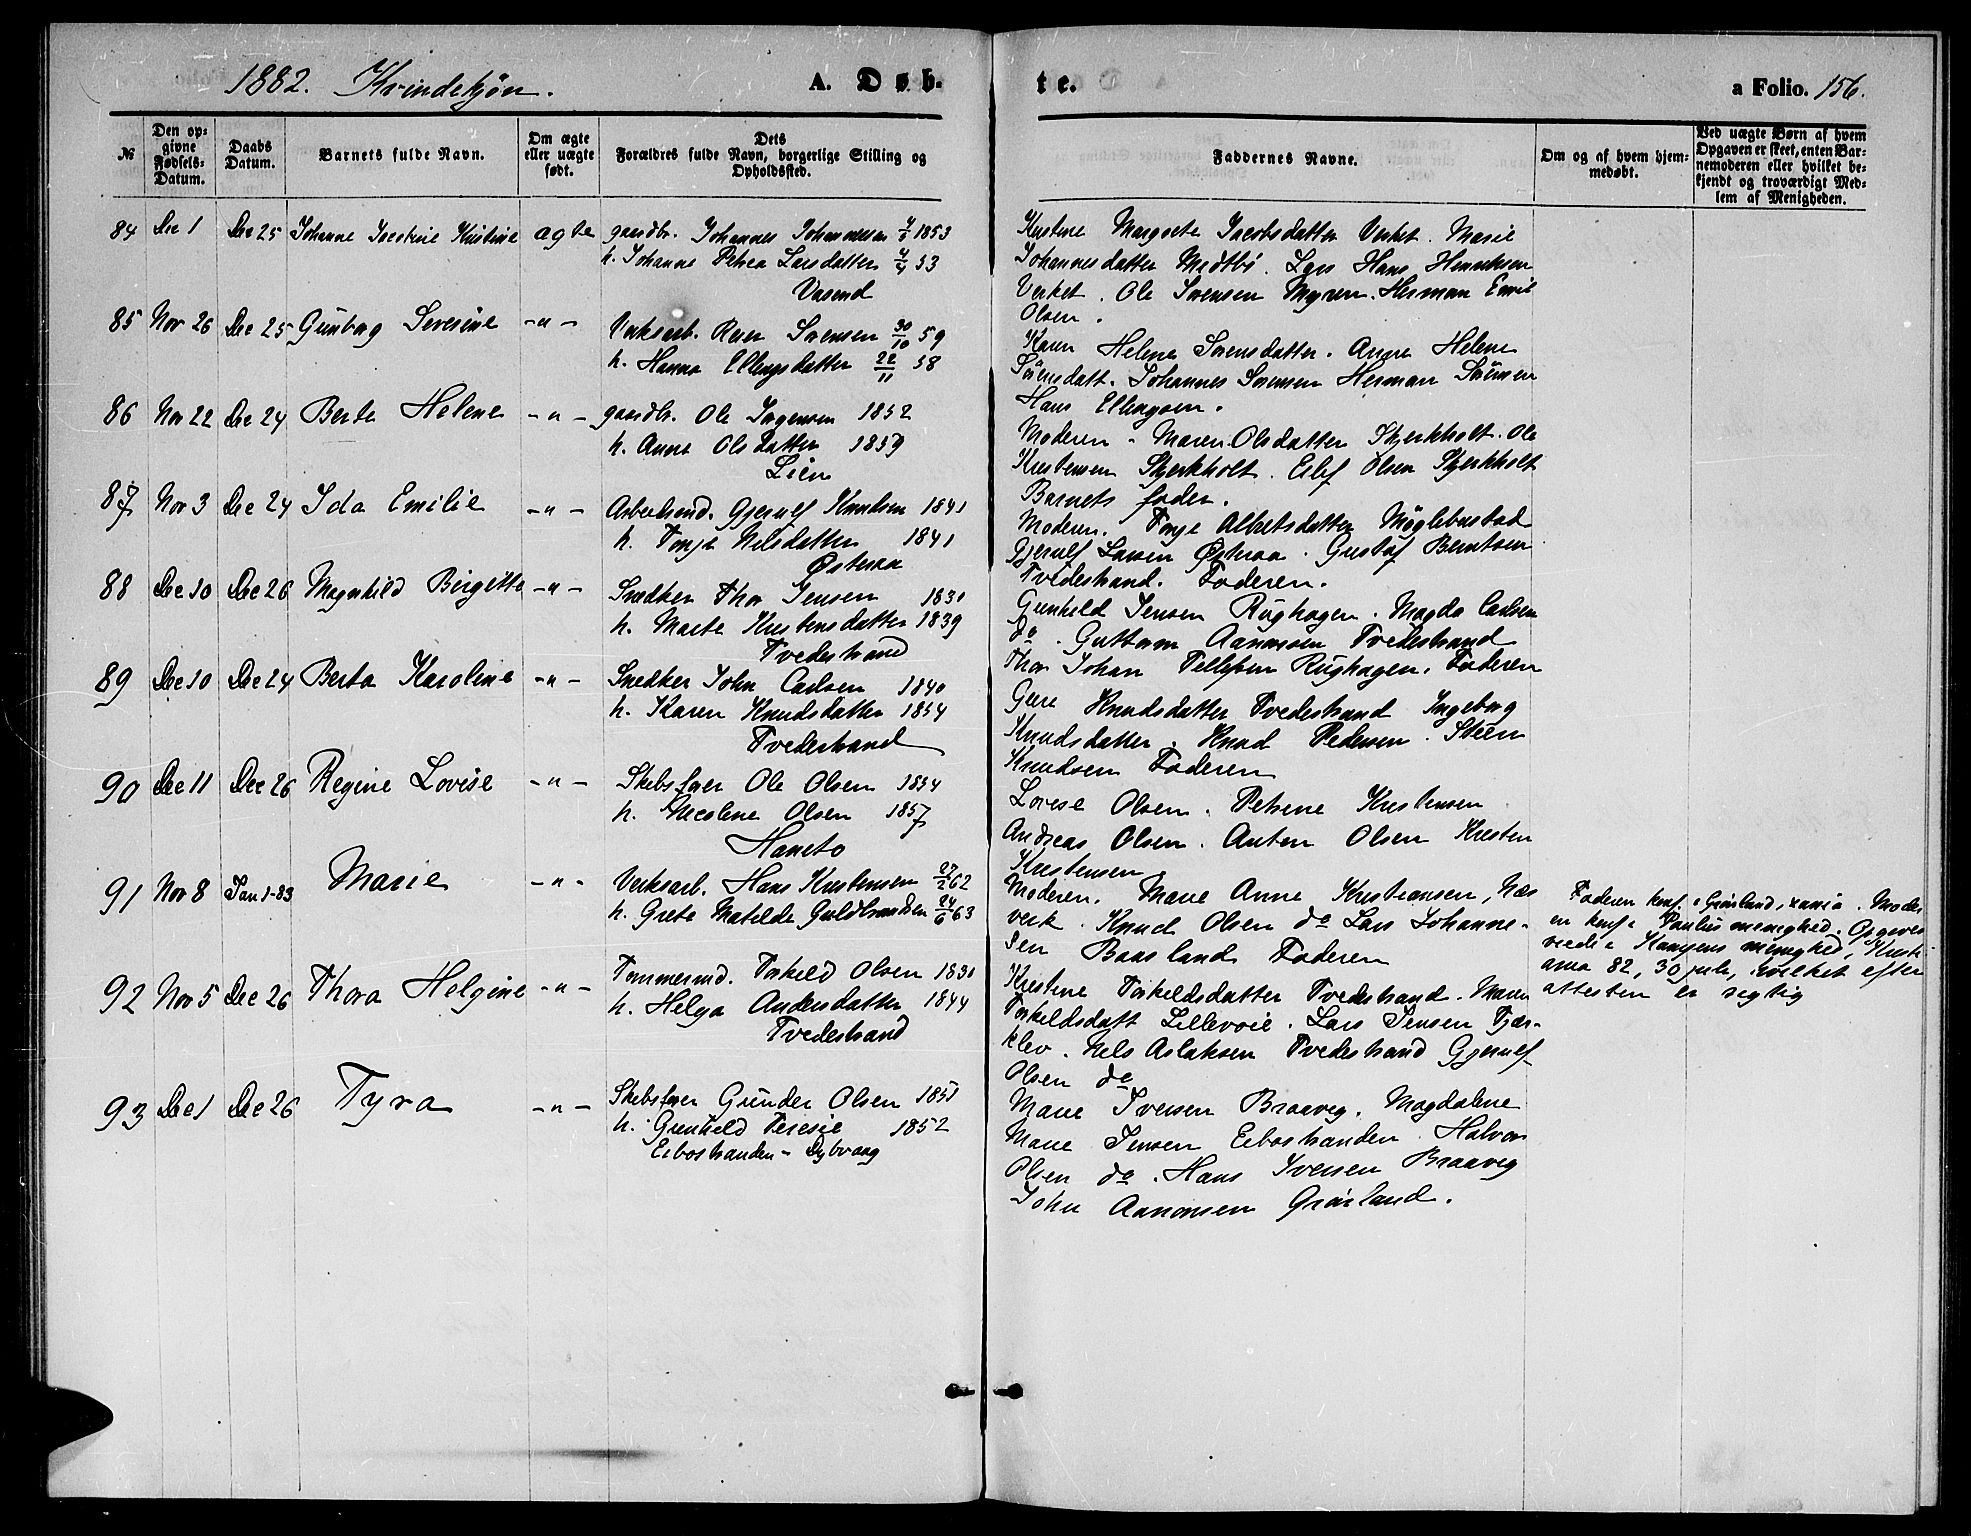 1882. Kvindekjøn.
A. Døb-
te.
a Folio. 156.
№
Den op-
givne
Fødsels-
Datum.
Daabs
Datum.
Barnets fulde Navn.
Om ægte
eller uægte
født.
Dets
Forældres fulde Navn, borgerlige Stilling og
Opholdssted.
Faddernes Navne.
Om og af hvem hjem-
medøbt.
Ved uægte Børn af hvem
Opgaven er skeet, enten Bar-
nemoderen eller hvilket be-
kjendt og troværdigt Med-
lem af Menigheden.
84 Dec 1 Dec 25 Johanne Kristine ægte
gaardbr. Johannes Johannesen 1853
h. Johanne Petrea Larsdatter 4/4 53
Vasend
Kristine Margrete Jacobsdatter Verket. Marie
Johannesdatter Midtbö. Lars Hans Henriksen
Verket. Ole Sörensen Myren. Herman Emil
Olsen.
85 Nov 26 Dec 25 Gunborg Severine -"-
Verksarb. Sörensen 30/10 59
h. Hanna Ellingsdatter 22/11 58
Karen Helene Sörensdatter. Anne Helene
Sörensdatt. Johannes Sörensen Herman Sörensen
Hans Ellingsen.
86 Nov 22 Dec 24 Berte Helene -"-
gaardbr. Ole Jörgensen 1852
h. Anne Olsdatter 1859
Lien
Moderen - Maren Olsdatter Stjerkholt. Ole
Kristensen Stjerkholt. Eilef Olsen Stjerkholt
Barnets fader.
87 Nov 3 Dec 24 Ida Emilie -"-
Arbeidsmd. Gjerulf Knudsen 1841
h. Tonje Nilsdatter 1841
Østeraa
Moderen. Tonje Albertsdatter Møglebustad
Gjerulf Larsen Østeraa. Gustaf Berntsen
Tvedestrand. Faderen.
88 Dec 10 Dec 26 Magnhild Birgitte -"-
Snedker Thor Jensen 1830
h. Marte Kristensdatter 1839
Tvedestrand
Gunhild Jensen Rughagen. Magda Carlsen
do. Guttorm Aanonsen Tvedestrand
Thor Johan Tellefsen Rughagen. Faderen
89 Dec 10 Dec 24 Berta Karoline -"-
Snedker John Carlsen 1840
h. Karen Knudsdatter 1854
Tvedestrand
Knudsdatter Tvedestrand Ingeborg
Knudsdatter. Knud Pedersen. Steen
Knudsen Faderen
90 Dec 11 Dec 26 Regine Lovise -"-
Skibsfører Ole Olsen 1854
h. Nicoline Olsen 1857
Hanto
Lovise Olsen. Petrine Kristensen
Andreas Olsen. Anton Olsen Kristen
Kristensen
91 Nov 8 Jan 1-83 Marie -"-
Verksarb. Hans Kristensen 27/2 62
h. Grete Matilde Guldbrandsen 24/6 63
Moderen. Marie Anne Kristiansen, Næs
verk. Knud Olsen do Lars Johanne-
sen Baasland. Faderen
Faderen konf. i Grönland, xania. Moder
en konf. i Paulus menighed. Opgives
viede i Kampens menighed, Kristi
ania 82, 30 juli, hvilket efter
attesten er rigtig
92 Nov 5 Dec 26 Thora Helgine -"-
Tømmermd. Torkild Olsen 1830
h. Helga Andersdatter 1844
Tvedestrand
Kristine Torkildsdatter Tvedestrand. Maren
Torkildsdatt Lillevoie. Lars Jensen Tjær-
klev. Nils Aslaksen Tvedestrand Gjerulf
Olsen do
93 Dec 1 Dec 26 Tyra -"-
Skibsfører Gunder Olsen 1851
h. Gunhild Teresie 1852
Eibostranden - Dybvaag
Marie Iversen Braaveg. Magdalene
Marie Jensen Eibostranden. Halvor
Olsen do. Hans Iversen Braaveg
John Aanonsen Grönland.